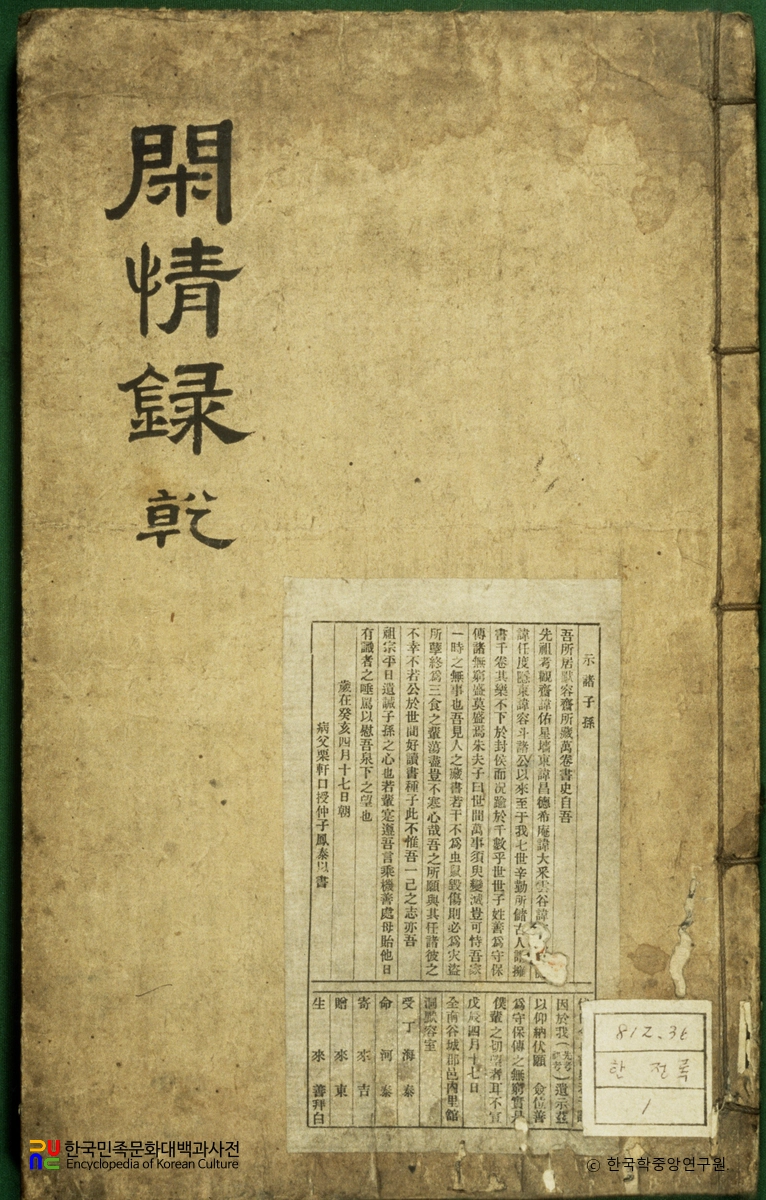 閑情録 乾
示諸子孫
吾所居默容齋所藏萬卷書史自吾
先祖考觀齋諱佑星墻東諱昌德希庵諱大釆雲谷諱
諱任度隱東諱容斗諸公以來至于我七世辛勤所儲古人謂擁
書千卷其樂不下於封侯而況踰於千數乎世世子姓善爲守保
傳諸無窮盛莫盛焉朱夫子曰世間萬事須臾變滅豈可恃吾家
一時之無事也吾見人之藏書若干不爲虫鼠毁傷則必爲灾盜
所孽終爲三食之輩蕩盡豈不寒心哉吾之所願與其任諸彼之
不幸不若公於世間好讀書種子此不惟吾一己之志亦吾
祖宗平日遺誡子孫之心也若輩寔遵吾言乘機善處毋貽他日
有識者之唾罵以慰吾泉下之望也
歲在癸亥四月十七日朝
病父栗軒口授仲子鳳泰以書
因於我 遺示茲
以仰納伏願 僉位善
爲守保傳之無窮實是
僕輩之切望者耳不宣
戊辰四月十七日
全南谷城郡邑內里舘
洞默容室
受丁海泰
命 河泰
寄 來吉
贈 來東
生 來善拜白
812.36
한정록
1
한국민족문화대백과사전
Encyclopedia of Korean Culture
© 한국학중앙연구원